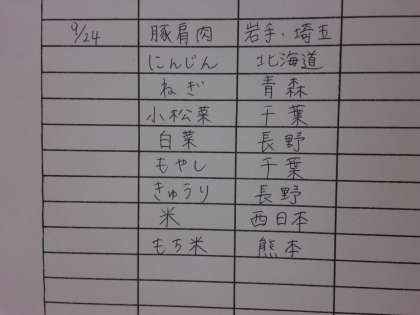 9/24 豚肩肉 岩手・埼玉
にんじん 北海道
ねぎ 青森
小松菜 千葉
白菜 長野
もやし 千葉
きゅうり 長野
米 西日本
もち米 熊本